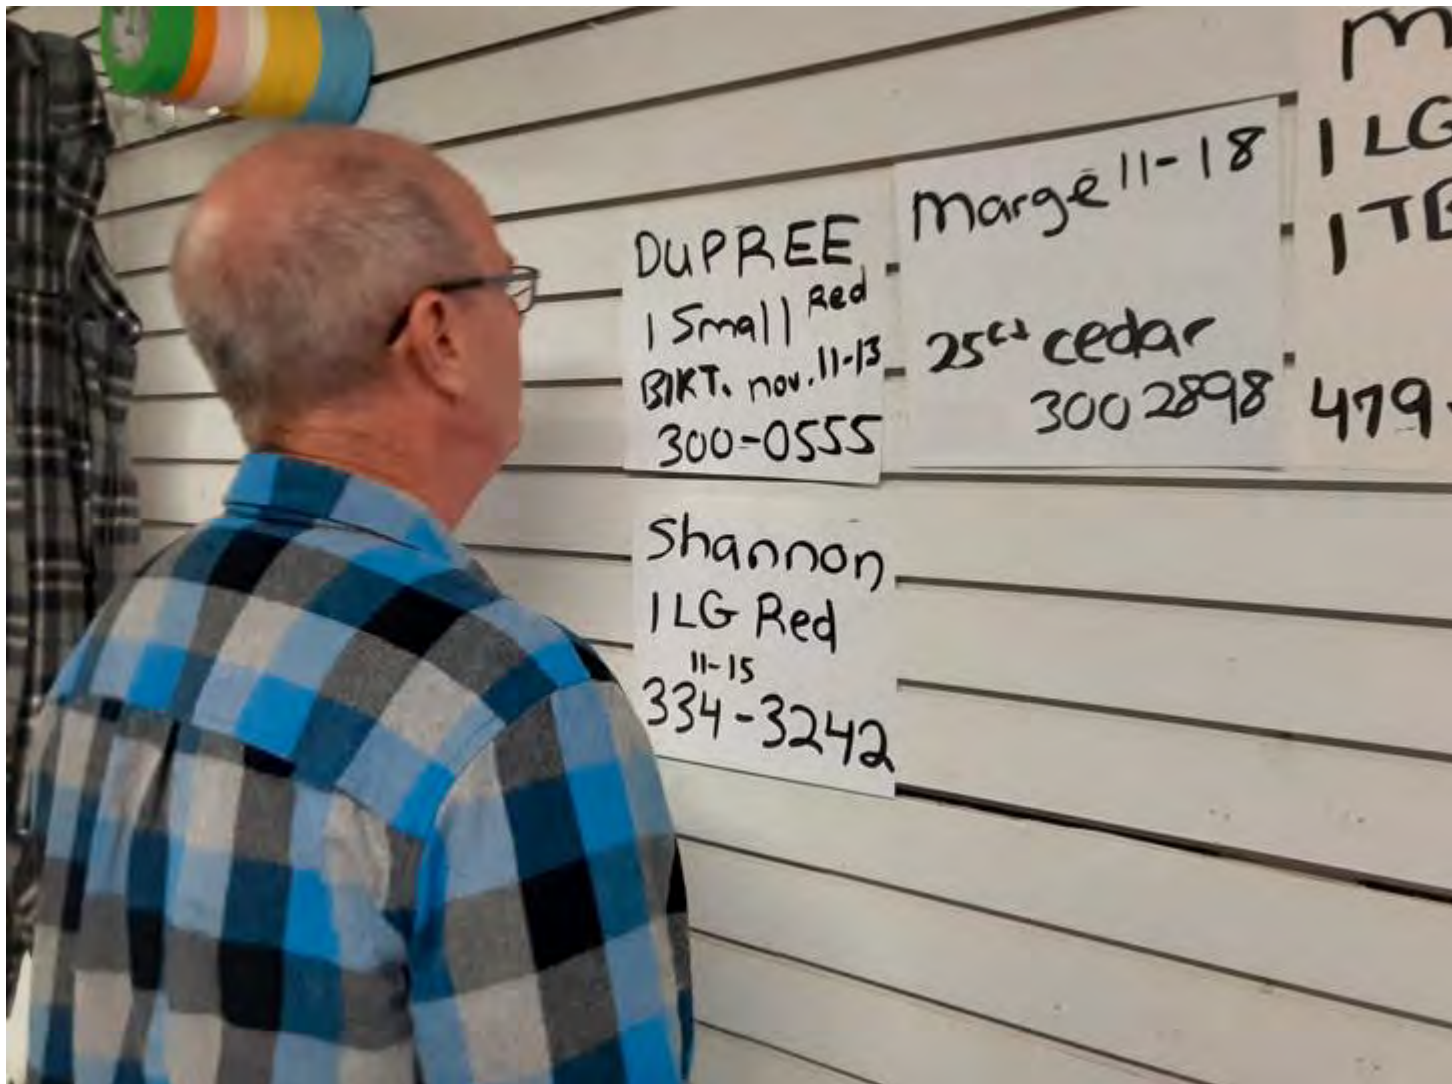 DUPREE
1 Small Red
BIKT. nov. 11-13
300-0555
Marge 11-18
25ct cedar
300 2898
Shannon
1 LG Red
11-15
334-3242
1 LG
479-